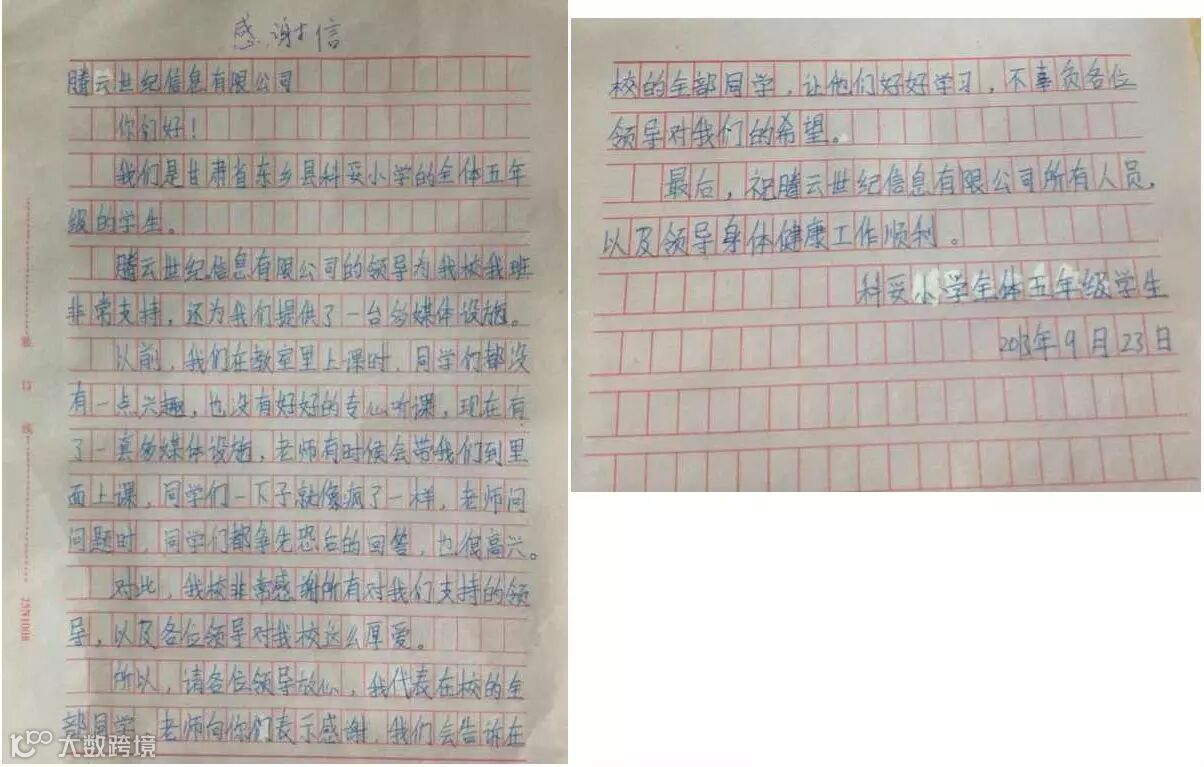 感谢信
腾云世纪信息有限公司
你们好！
我们是甘肃省东乡县科妥小学的全体五年
级的学生。
腾云世纪信息有限公司的领导为我校我班
非常支持，还为我们提供了一台多媒体设施。
以前，我们在教室里上课时，同学们都没
有一点兴趣，也没有好好的专心听课，现在有
了一套多媒体设施，老师有时候会带我们到里
面上课，同学们一下子就像疯了一样，老师问
问题时，同学们都争先恐后的回答，也很高兴。
对此，我校非常感谢所有对我们支持的领
导，以及各位领导对我校这么厚爱。
所以，请各位领导放心，我代表在校的全
部同学 老师向你们表示感谢，我们会告诉在
校的全部同学，让他们好好学习，不辜负各位
领导对我们的希望。
最后，祝腾云世纪信息有限公司所有人员，
以及领导身体健康工作顺利。
科妥小学全体五年级学生
2013年9月23日
装
订
线
大数跨境